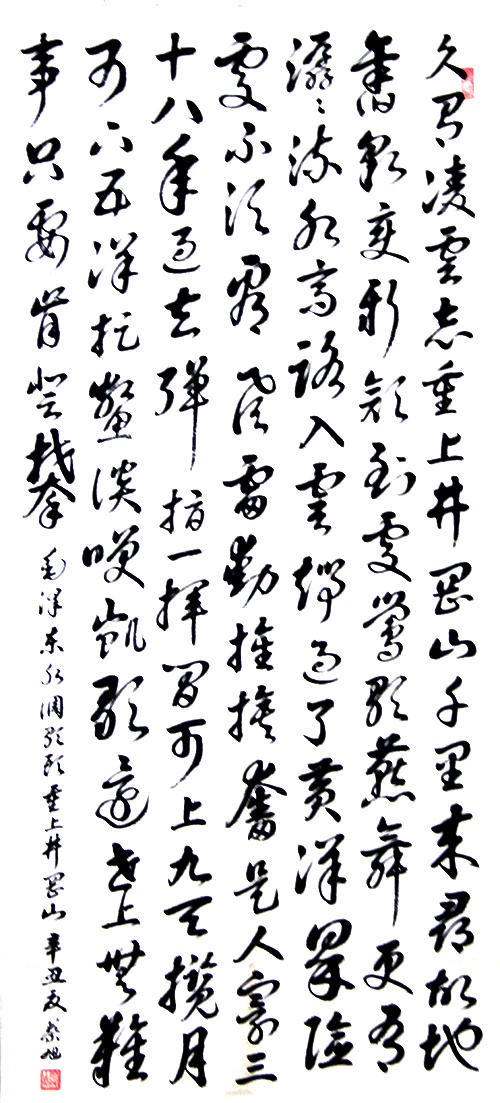 久有凌雲志重上井岡山千里来尋故地
舊貌變新顔到處鶯歌燕舞更有
潺潺流水高路入雲端過了黄洋界險
處不須看風雷動旌旗奮是人寰三
十八年過去彈指一揮間可上九天攬月
可下五洋捉鱉談笑凱歌還世上無難
事只要肯登攀 毛澤東水調歌頭重上井岡山 辛丑夏